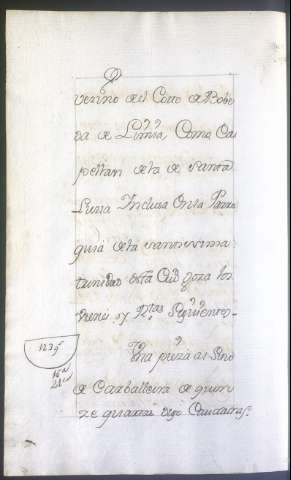 verino del Coto de Bobe
da de Limia Como Ca
pellan de la de santa
Luzia Inclusa En la Parro
quia de la santissima
trinidad desta Ciud goza los
vienes y Rtas Siguientes
Vna pieza al Sitio
de Carballeira de quin
ze quartas digo Cauaduras
1239